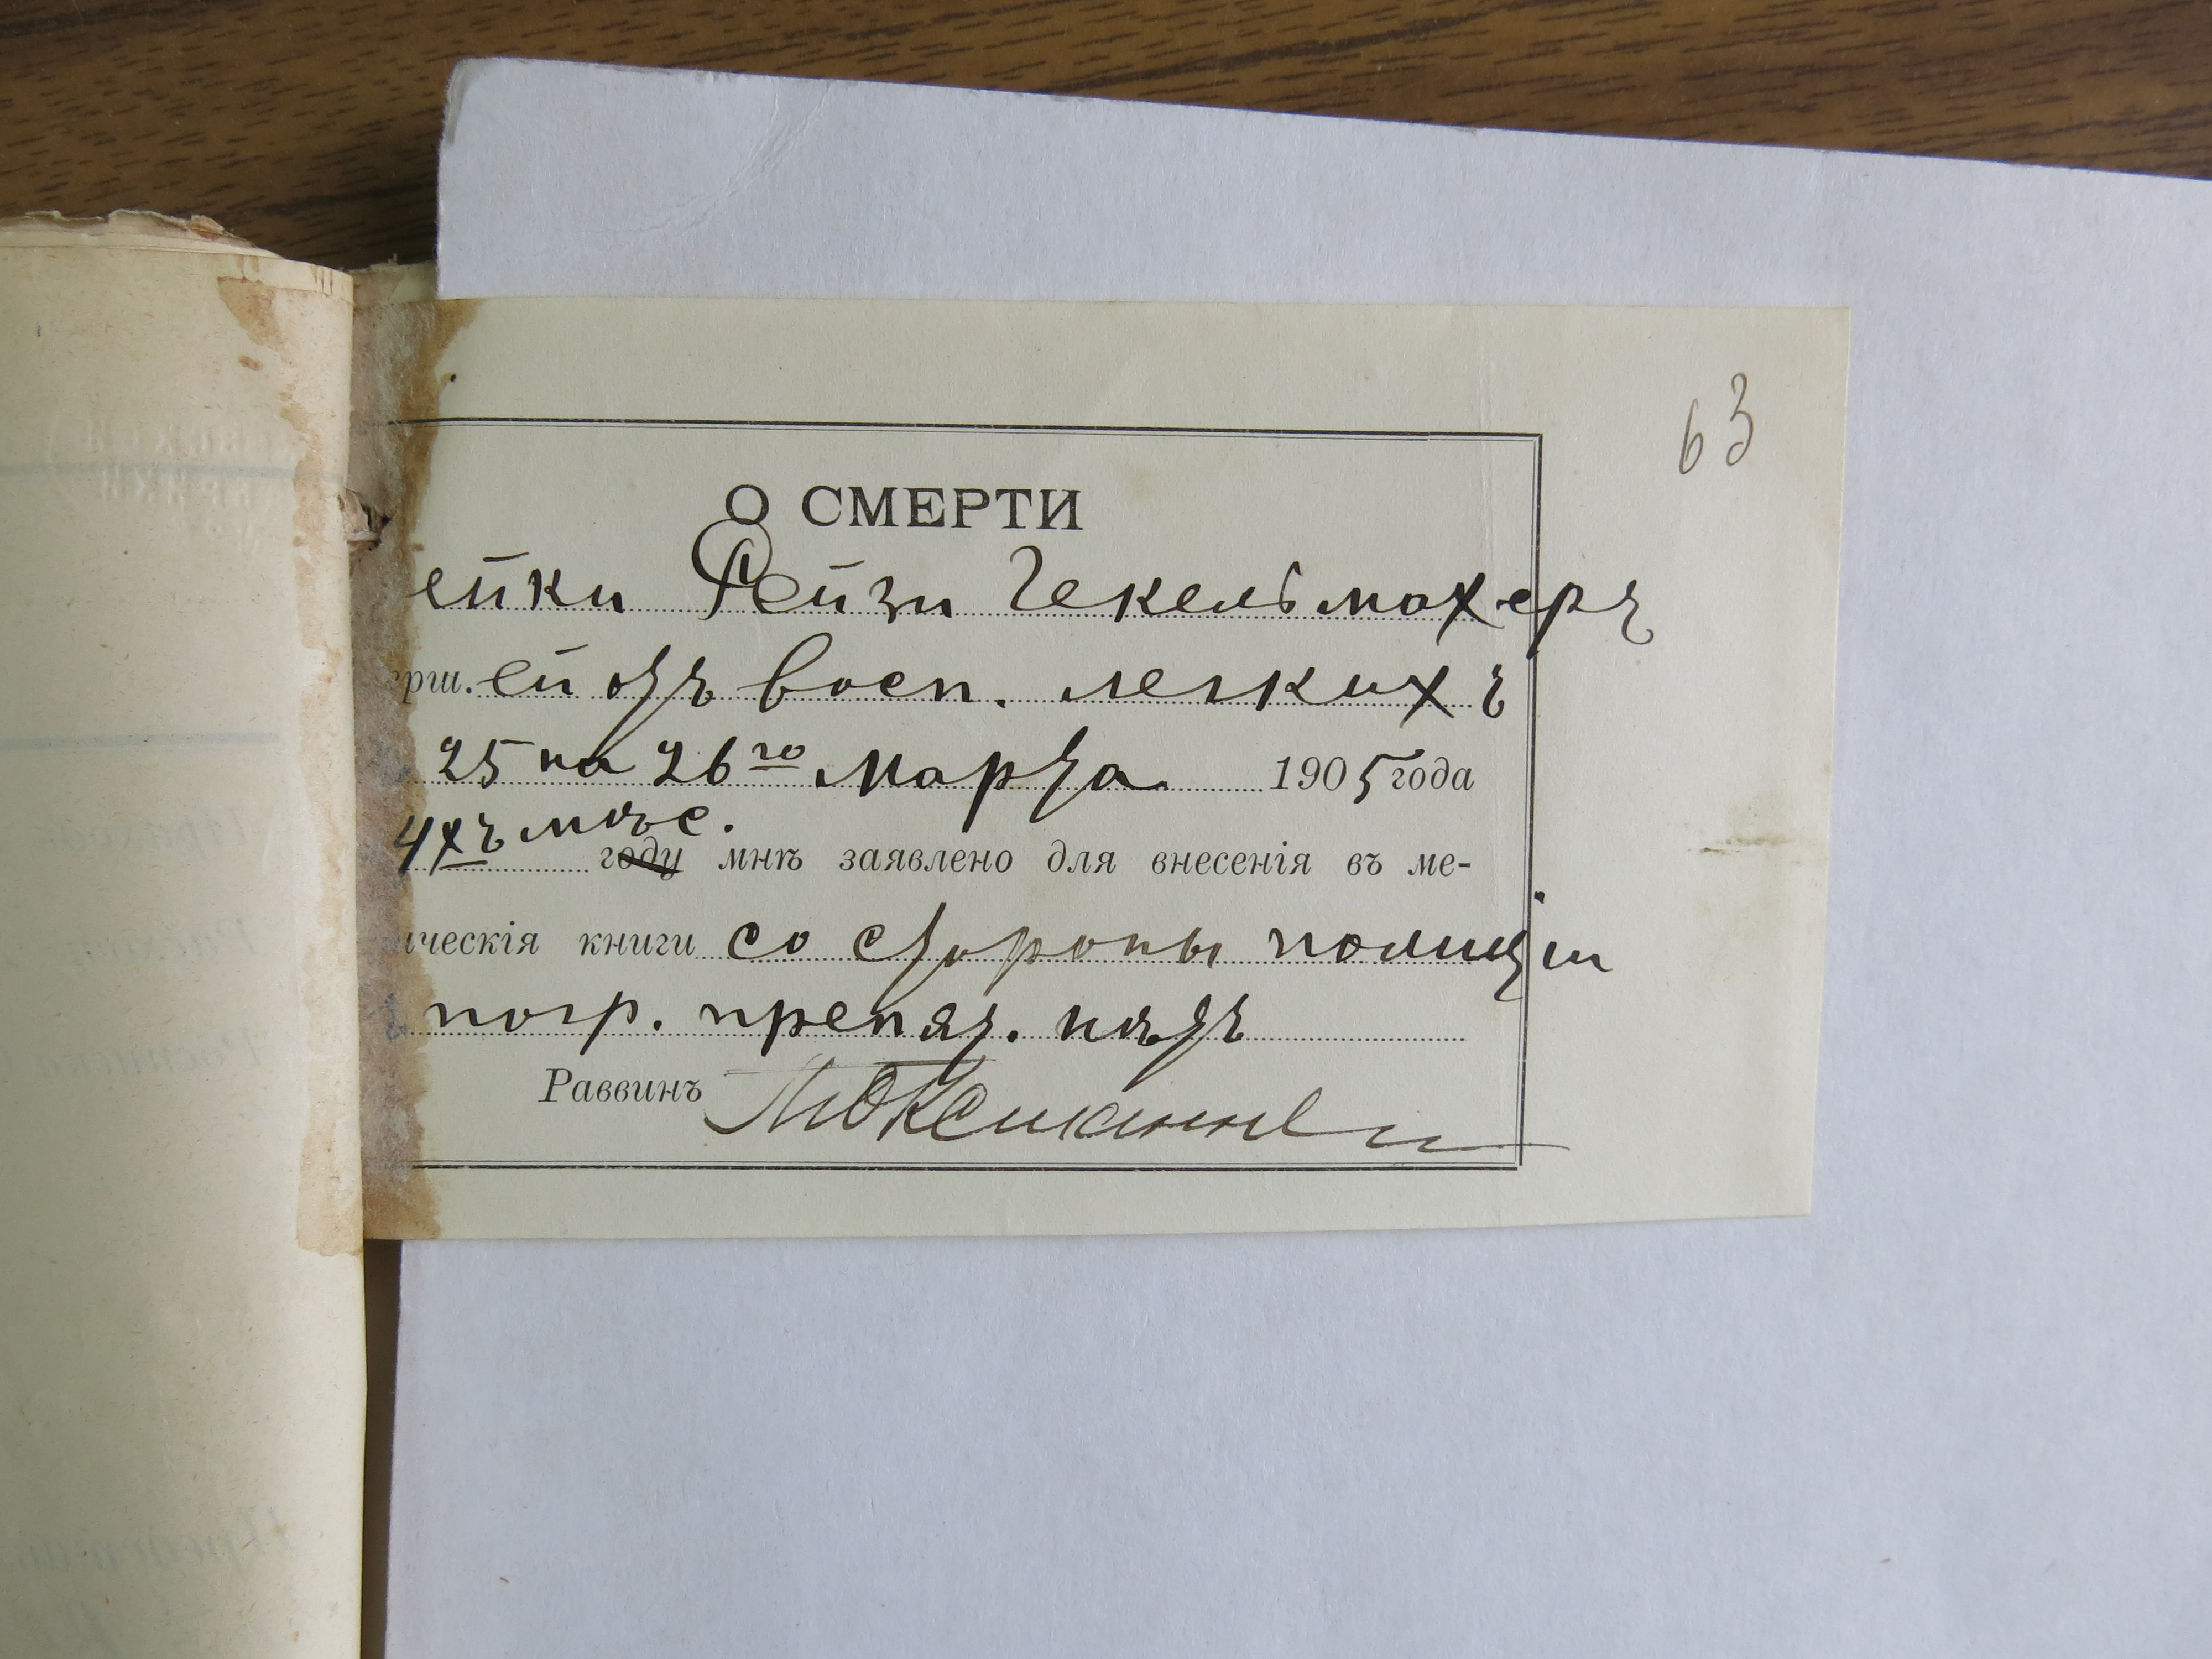 63
О СМЕРТИ
ейки Рейзи Гекельмахеръ
ерш. ей отъ восп. легкихъ
25 на 26го Марта 1905 года
4хъ мѣс. году мнѣ заявлено для внесенія въ ме-
ическія книги со стороны полиціи
ъ погр. препят. нѣтъ
Раввинъ